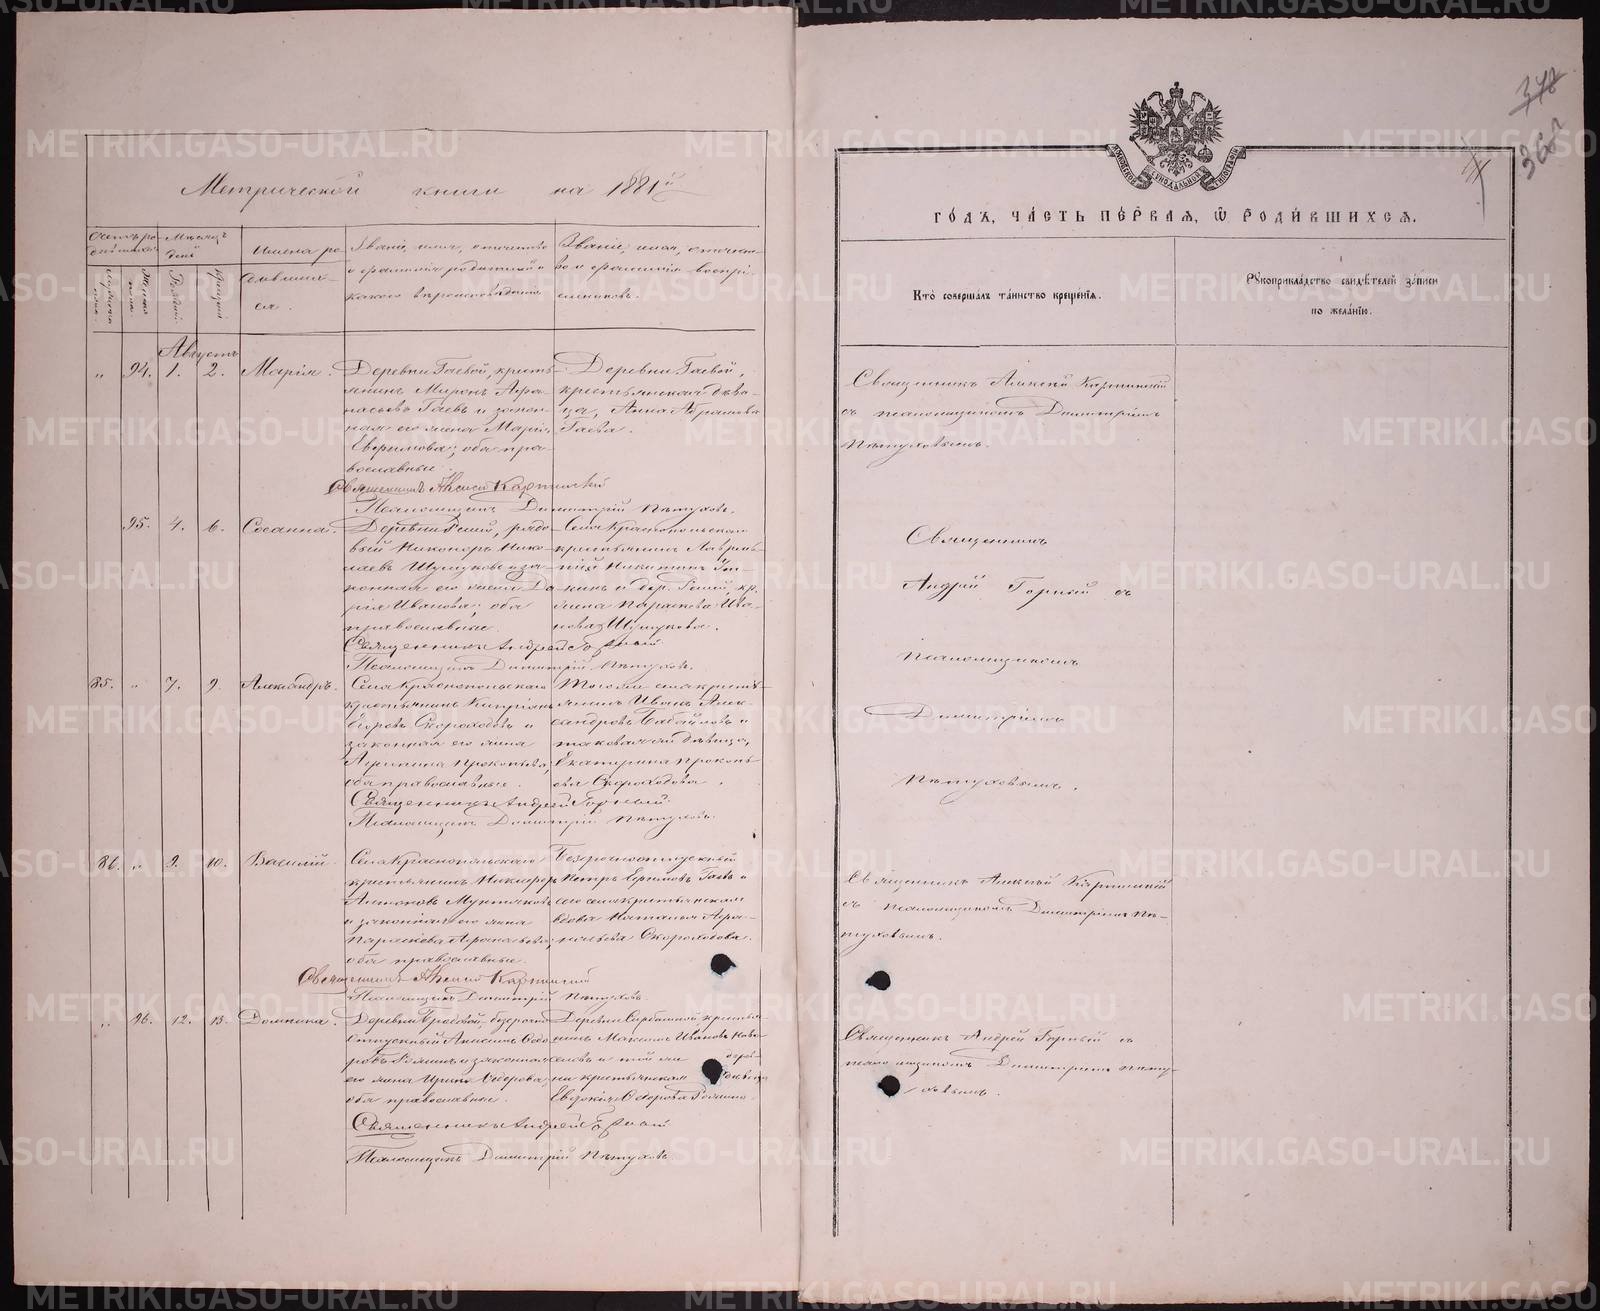 Метрической книги на 1881й
Счетъ родившихся
Мѣсяцъ и день
Имена родившихся.
Званіе, имя, отчество и фамилія родителей и какого вѣроисповѣданія.
Званіе, имя, отчество и фамилія воспріемниковъ.
Мужеска пола.
Женска пола.
Рожденія.
Крещенія
Августъ
„ 94. 1. 2. Марія.
Деревни Гаевой, кресть-
янинъ Миронъ Афа-
насьевъ Гаевъ и закон-
ная его жена Марія
Ефимова; оба пра-
вославные.
Деревни Гаевой,
крестьянская дѣви-
ца, Анна Абрамова
Гаева.
Священникъ Алексій Карпинскій
Псаломщикъ Димитрій Пѣтуховъ.
95. 4. 6. Сосанна.
Деревни , рядо-
вый Никоноръ Нико-
лаевъ и за-
конная его жена Да-
рія Иванова; оба
православные.
Села Краснопольскаго
крестьянинъ Лаврен-
тій Никитинъ
жена Параскева Ива-
нова
Священникъ Андрей Горный
Псаломщикъ Димитрій Пѣтуховъ.
85. „ 7. 9. Александръ.
Села Краснопольскаго
крестьянинъ Кипріянъ
Егоровъ Скороходовъ и
законная его жена
Агрипина Прокопьева,
оба православные.
Того же села кресть-
янинъ Иванъ Алек-
сандровъ Бабайловъ и
таковая же дѣвица,
Екатерина Прокопь-
ева Скороходова.
Священникъ Андрей Горный.
Псаломщикъ Димитрій Пѣтуховъ.
86. „ 9. 10. Василій.
Села Краснопольскаго
крестьянинъ Никифоръ
Антоновъ
и законная его жена
Параскева Афанасьева,
оба православные.
Безсрочноотпускный
Петръ Ефимовъ Гаевъ и
того села крестьянская
вдова Наталья Афа-
насьева Скороходова.
Священникъ Алексій Карпинскій
Псаломщикъ Димитрій Пѣтуховъ.
„ 96. 12. 13. Домнина.
Деревни , безсрочно
отпускный Анисимъ Ѳедо-
ровъ и законная
его жена Ирина Ѳедорова,
оба православные.
Деревни крестья-
нинъ Максимъ Ивановъ
и той же
крестьянская дѣвица
Евдокія
Священникъ Андрей Горный
Псаломщикъ Димитрій Пѣтуховъ.
МОСКОВСКОЙ СѴНОДАЛЬНОЙ ТИПОГРАФІИ
378
368
ГОДЪ, ЧАСТЬ ПЕРВАЯ, Ѡ РОДИВШИХСЯ.
Кто совершалъ таинство крещенія.
Рукоприкладство свидѣтелей записи
по желанію.
Священникъ Алексій Карпинскій
съ псаломщикомъ Димитріемъ
Пѣтуховымъ.
Священникъ
Андрей Горный съ
псаломщикомъ
Димитріемъ
Пѣтуховымъ.
Священникъ Алексій Карпинскій
съ псаломщикомъ Димитріемъ Пѣ-
туховымъ.
Священникъ Андрей Горный съ
псаломщикомъ Димитріемъ Пѣту-
ховымъ.
METRIKI.GASO-URAL.RU